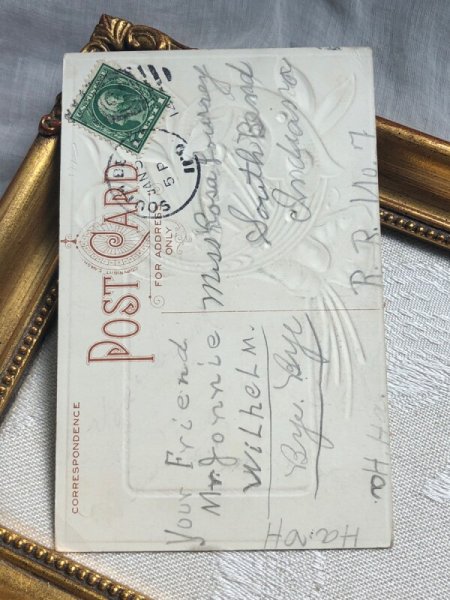 POST CARD
CORRESPONDENCE
FOR ADDRESS
ONLY
JAN
5 P
Your Friend
Mr. Jonnie
Wilhelm.
Bye. Bye
Ha. Ha.
Ha. Ha
Miss Rosie
South Bend
Indiana
R. R. No. 7